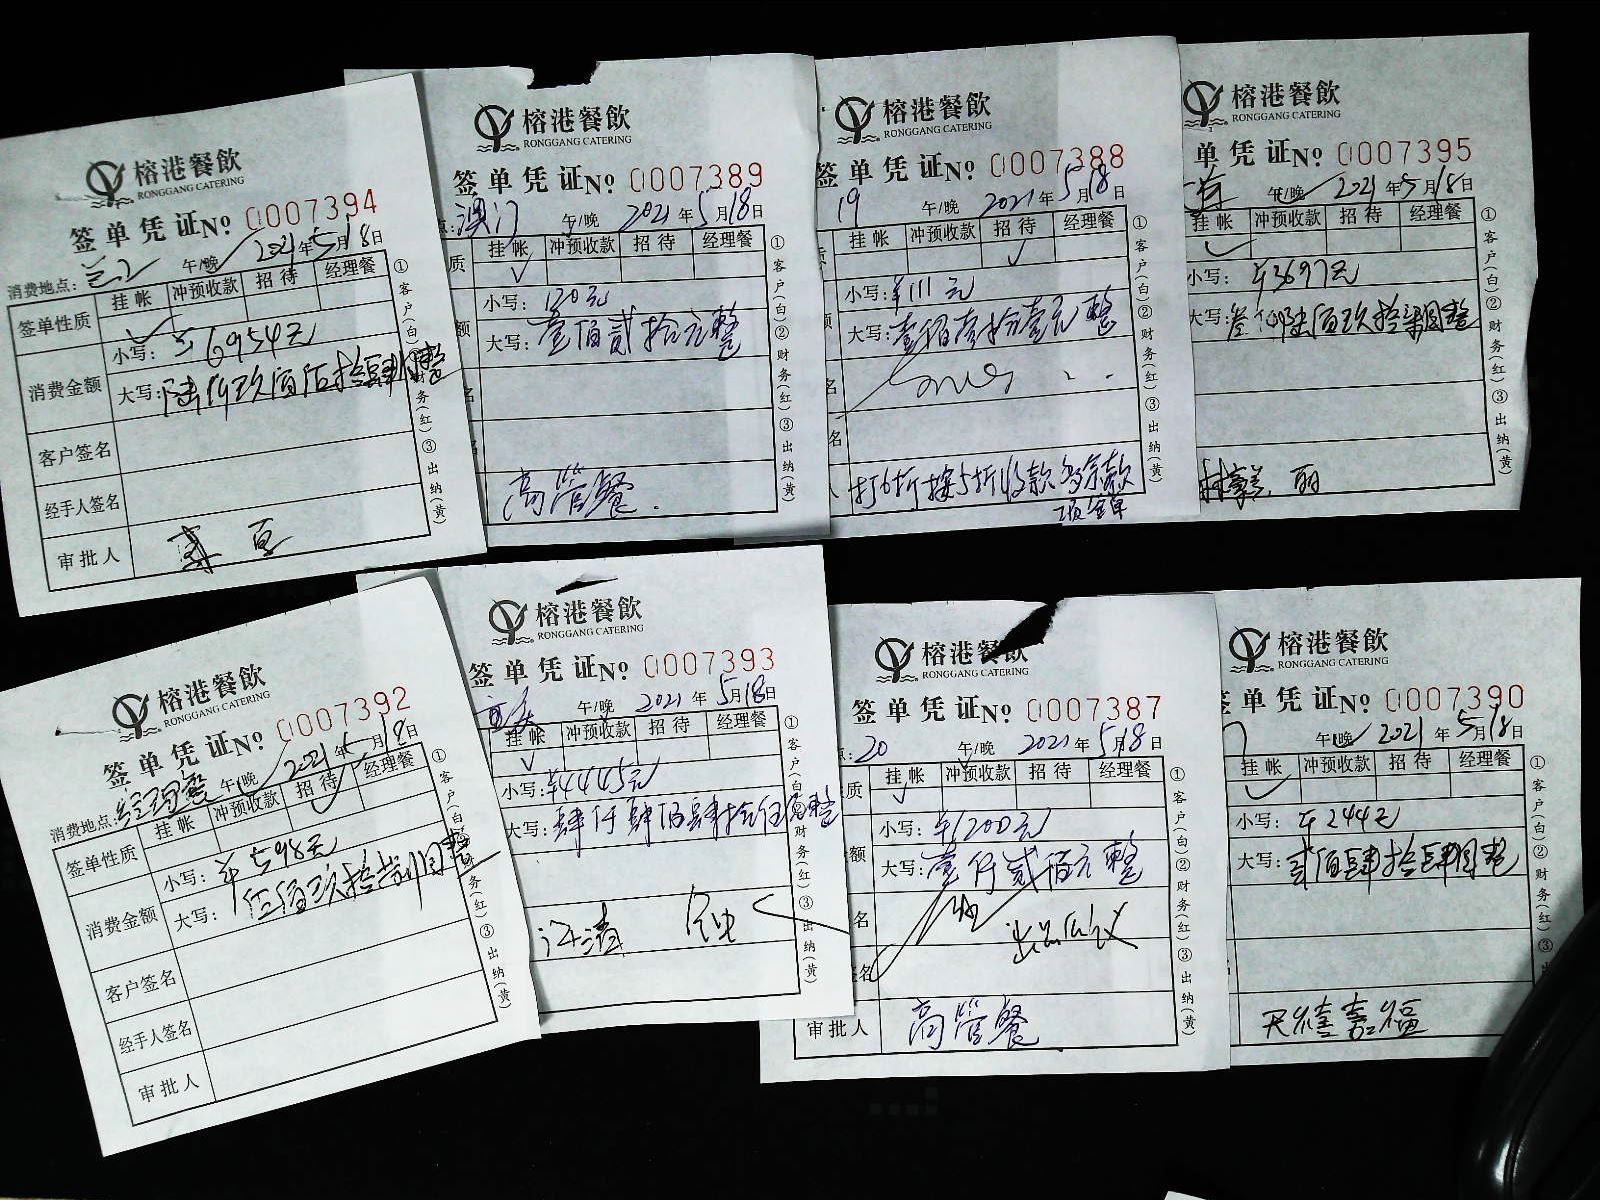 榕港餐飲
RONGGANG CATERING
签单凭证№ 0007394
消费地点: 午/晚 2021年5月18日
签单性质 挂帐 冲预收款 招待 经理餐
消费金额 小写: ¥6954元
大写: 陆仟玖佰伍拾肆圆整
客户签名
经手人签名
审批人
①客户(白)②财务(红)③出纳(黄)
榕港餐飲
RONGGANG CATERING
签单凭证№ 0007389
点: 澳门 午/晚 2021年5月18日
质 挂帐 冲预收款 招待 经理餐
额 小写: 120元
大写: 壹佰贰拾元整
名
高管餐.
①客户(白)②财务(红)③出纳(黄)
榕港餐飲
RONGGANG CATERING
签单凭证№ 0007388
19 午/晚 2021年5月18日
质 挂帐 冲预收款 招待 经理餐
额 小写: ¥111元
大写: 壹佰壹拾壹元整
名
名
人 打6折按5折收款多余款
①客户(白)②财务(红)③出纳(黄)
榕港餐飲
RONGGANG CATERING
单凭证№ 0007395
午/晚 2021年5月18日
挂帐 冲预收款 招待 经理餐
小写: ¥3697元
大写: 叁仟陆佰玖拾柒圆整
丽
①客户(白)②财务(红)③出纳(黄)
榕港餐飲
RONGGANG CATERING
签单凭证№ 0007392
消费地点: 经理餐 午/晚 2021年5月18日
签单性质 挂帐 冲预收款 招待 经理餐
消费金额 小写: ¥598元
大写: 伍佰玖拾捌圆整
客户签名
经手人签名
审批人
①客户(白)②财务(红)③出纳(黄)
榕港餐飲
RONGGANG CATERING
签单凭证№ 0007393
午/晚 2021年5月18日
挂帐 冲预收款 招待 经理餐
小写: ¥4445元
大写: 肆仟肆佰肆拾伍圆整
江清
①客户(白)②财务(红)③出纳(黄)
榕港餐飲
RONGGANG CATERING
签单凭证№ 0007387
点: 20 午/晚 2021年5月18日
质 挂帐 冲预收款 招待 经理餐
额 小写: ¥1200元
大写: 壹仟贰佰元整
名
签名
审批人 高管餐
①客户(白)②财务(红)③出纳(黄)
榕港餐飲
RONGGANG CATERING
签单凭证№ 0007390
午/晚 2021年5月18日
挂帐 冲预收款 招待 经理餐
小写: ¥244元
大写: 贰佰肆拾肆圆整
嘉福
①客户(白)②财务(红)③出